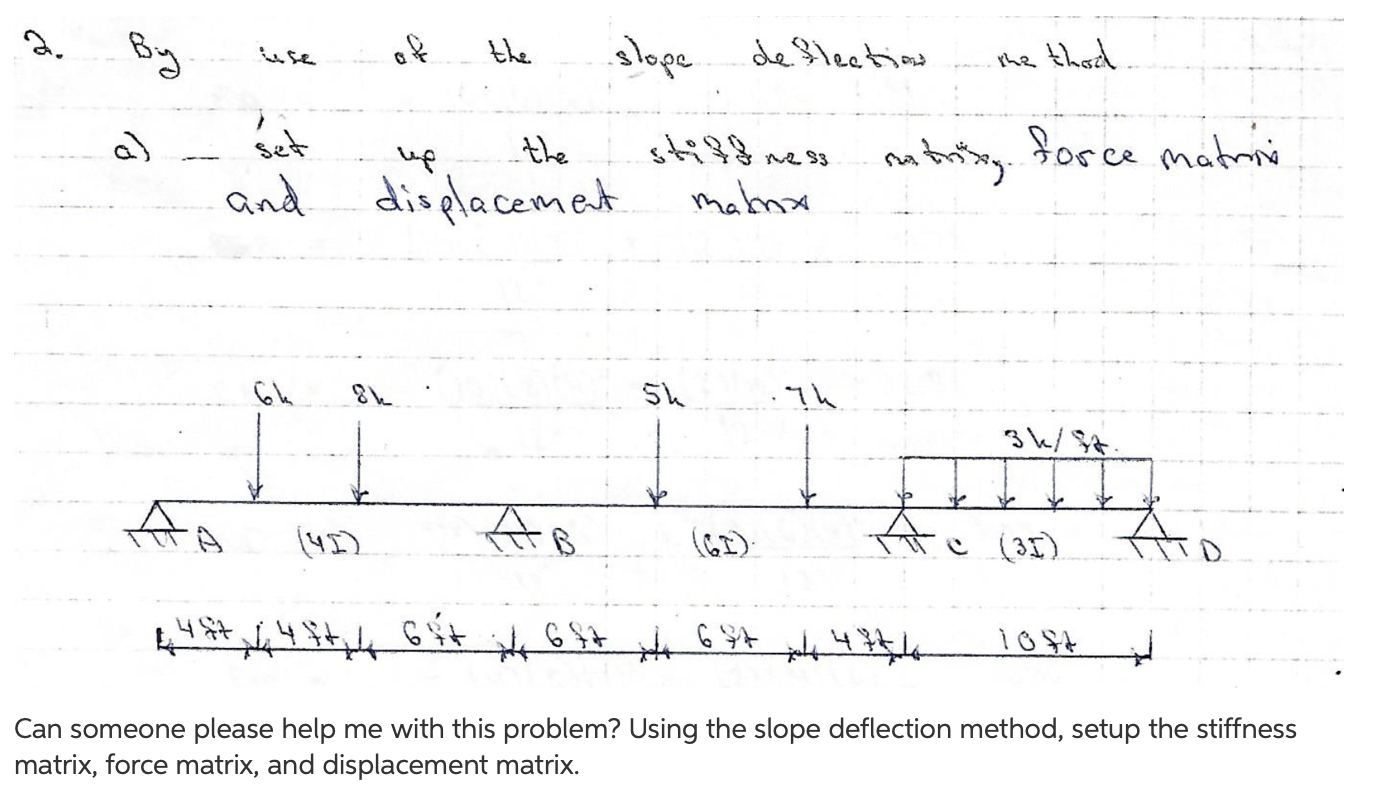 2. By use of the slope deflection method
a) — set up the stiffness matrix, force matrix
and displacement matrix
6k 8k 5k 7k
3k/ft.
A (4I) B (6I) C (3I) D
4ft 4ft 6ft 6ft 6ft 4ft 10ft
Can someone please help me with this problem? Using the slope deflection method, setup the stiffness
matrix, force matrix, and displacement matrix.